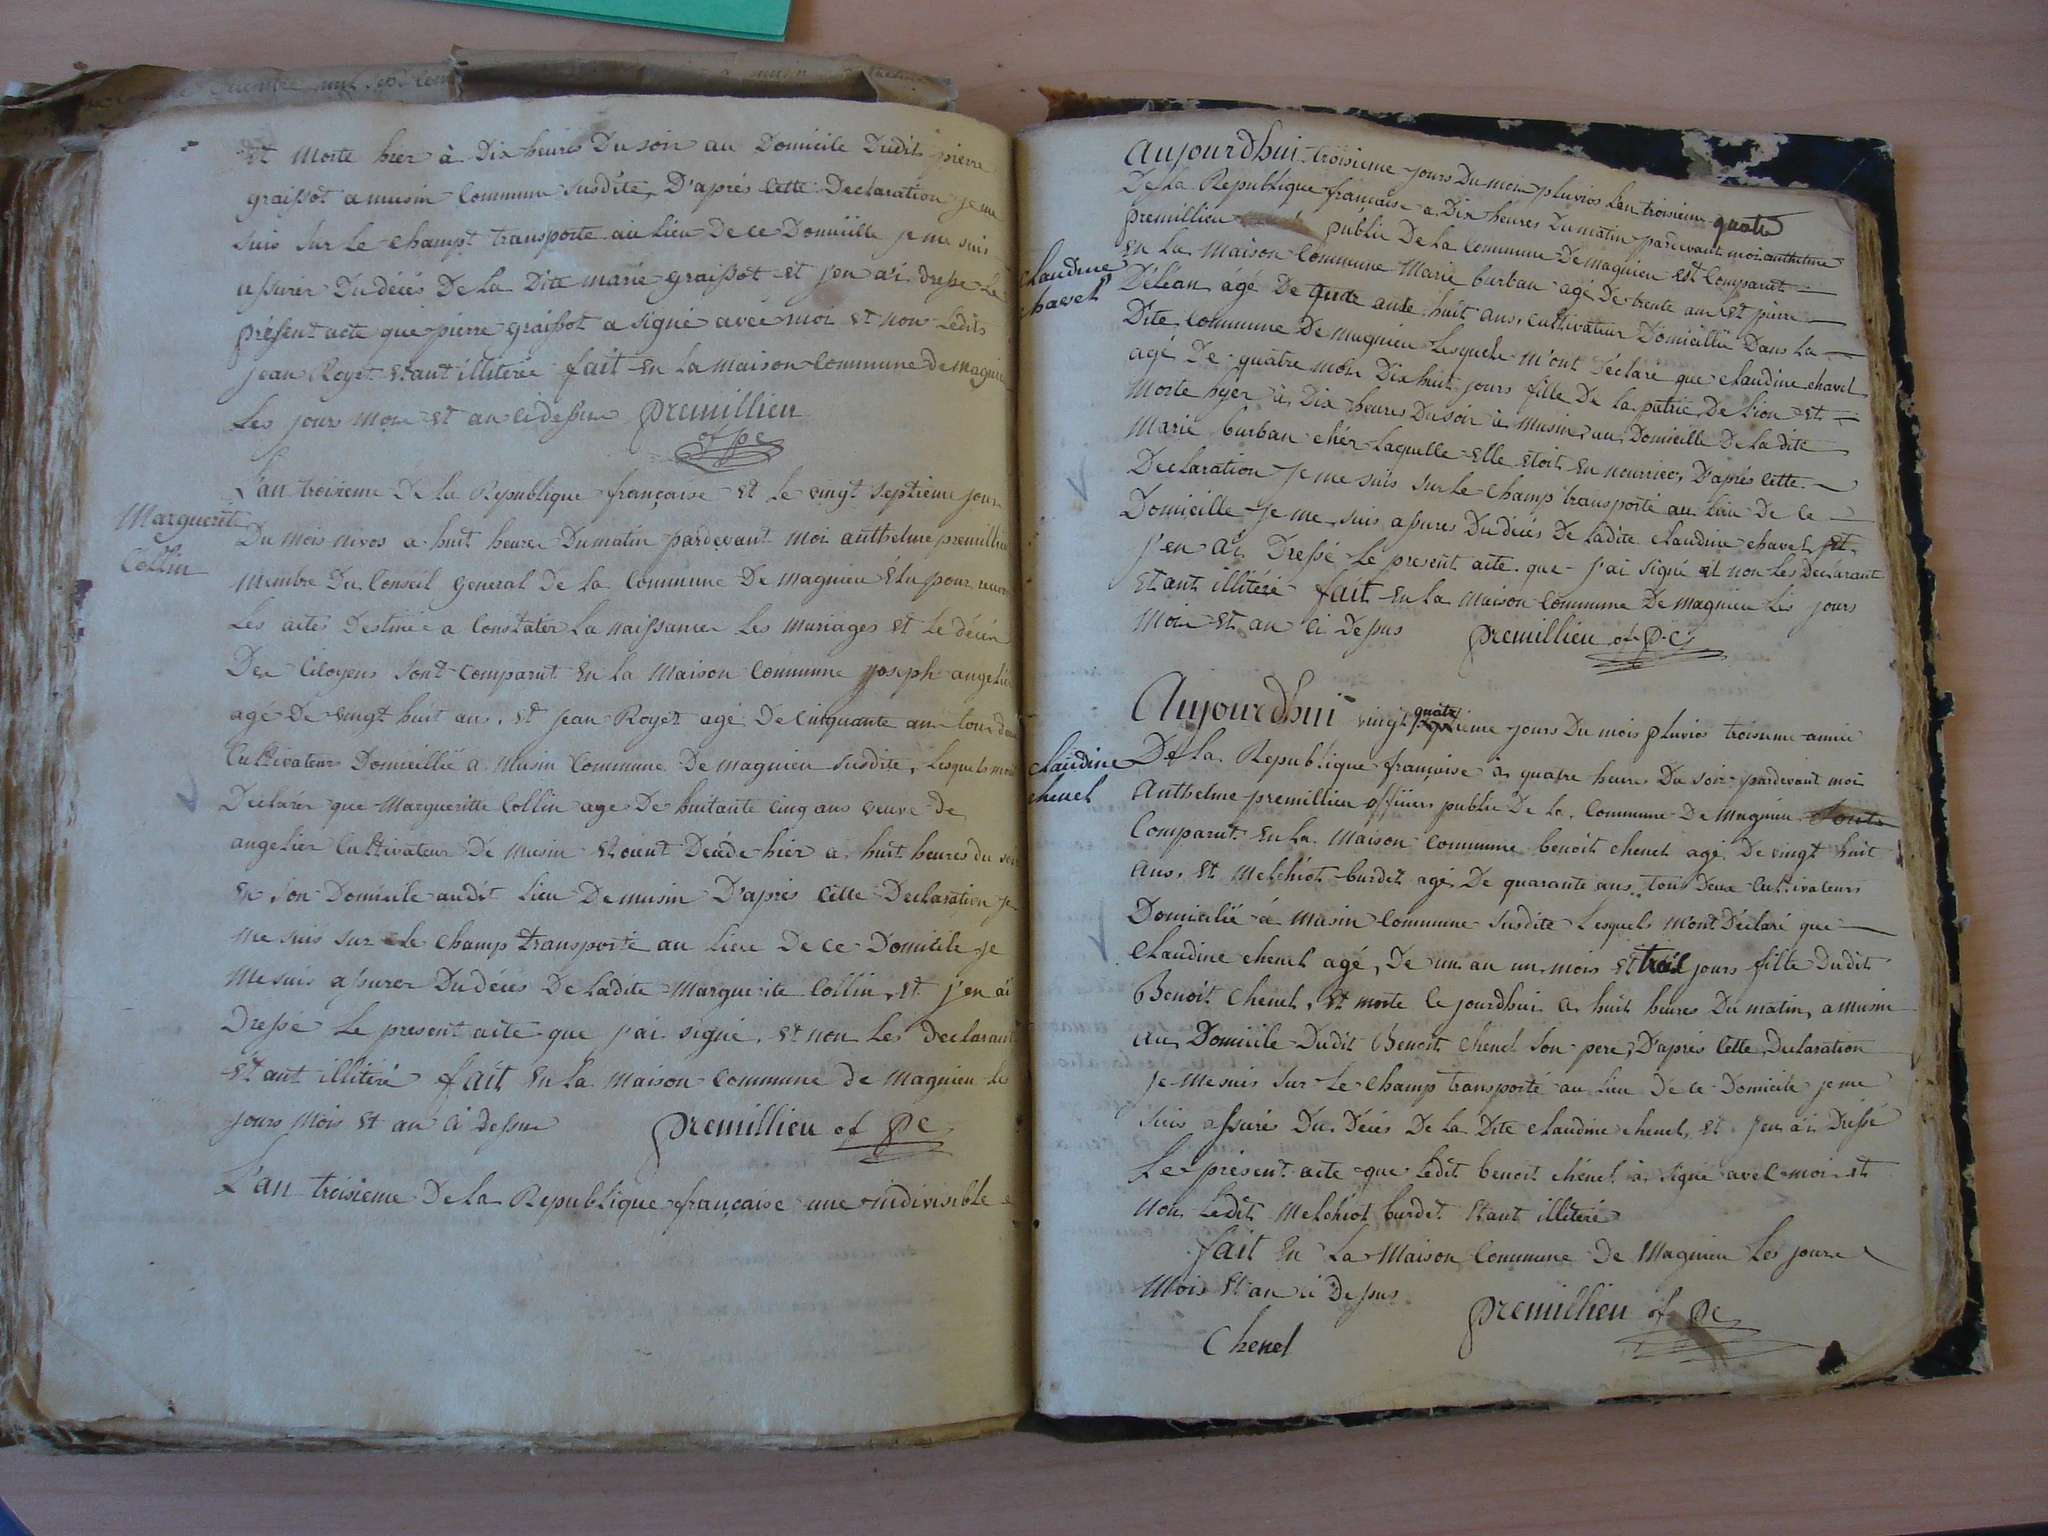 Et morte hier à Dix heures Du soir au Domicile Dudit pierre
graissot a musin Commune susdite, D'aprés Cette Declaration je me
suis sur Le champt transporte au Lieu De ce Domicille je me suis
assurer Du décés De La Dite marie graissot et j'en ai dresse Le
présent acte que pierre graissot a signé avec moi et non Ledit
jean Royet Etant illiterée fait En La maison Commune De magnieu
Les jours mois Et an ci dessus premillien
of pe
Marguerite
Collin
L'an troisieme De la Republique française Et le vingt septieme jour
Du mois nivos a huit heures Du matin pardevant moi anthelme premillieu
Membre Du Conseil General de la Commune De magnieu Elu pour
Les actes Destinée a Constater La naissances Les mariages Et Le décès
Des Citoyens sont comparut En La Maison Commune joseph angelier
agé De vingt huit ans, Et jean Royet agé De Cinquante ans tous deux
Cultivateurs Domicillié a Musin Commune De magnieu susdite, Lesquels mont
Déclarér que Margueritte Collin age De huitante Cinq ans veuve de
angelier Cultivateur De musin Etoient Décéde hier a huit heures du soir
En son Domicile audit Lieu De musin D'aprés Cette Declaration je
me suis sur Le champ transporté au Lieu De ce Domicile je
me suis assurer Du décés De Ladite Marguerite Collin, et j'en ai
Dressé Le present acte que j'ai signé, Et non Les Declarant
Etant illitéré fait En La maison Commune de magnieu Les
jours Mois Et an Ci Dessus premillieu of pe
L'an troisieme De La Republique française une indivisible
claudine
chavel
Aujourdhui troisieme jours Du mois pluvios L'an troisieme quatre
De La Republique française a Dix heures Du matin pardevant moi anthelme
premillieu public De La Commune De magnieu Est Comparut
En La Maison Commune Marie burban agé De trente ans Et pierre
Déléan agé De huit ans, cultivateur Domicillié Dans La
Dite Commune De magnieu Lesquels m'ont Déclare que claudine chavel
agé De quatre mois Dix huit jours fille De La patrie De Lion Et
Morte hyer à Dix heures Du soir à Musin, au Domicille De La dite
Marie burban chér Laquelle Elle Etoit En nourrice, D'aprés Cette
Declaration Je me suis sur Le Champ transporté au Lieu De Ce
Domicille je me suis assures Du décés De Ladite claudine chavel Et
j'en ai Dressé Le present acte que j'ai signé et non Les Declarant
Etant illitéré fait En La maison Commune De magnieu Les jours
Mois Et an Ci Dessus premillieu of pe
claudine
chenel
Aujourdhui vingt quatrieme jours Du mois pluvios troisieme année
De La Republique françoise à quatre heures Du soir pardevant moi
Anthelme premillieu officiers public De La Commune De magnieu
Comparut En La Maison Commune benoit chenel agé De vingt huit
Ans, Et Melchiot burdet agé De quarante ans, tous Deux Cultivateurs
Domicilié à Musin Commune susdite Lesquels m'ont Déclaré que
Claudine chenel agé, De un an un mois et trois jours fille Dudit
Benoit Chenel, Et morte Ce jourdhui a huit heures Du matin, a musin
au Domicile Dudit Benoit Chenel son pere, D'aprés Cette Declaration
Je me suis sur Le Champ transporté au Lieu De Ce Domicile je me
suis assurés Du Décés De La Dite claudine chenel, Et j'en ai Dressé
Le présent acte que Ledit benoit chénel à signé avec moi Et
non Ledit Melchiot burdet Etant illitéré
fait En La Maison Commune De Magnieu Les jours
Mois Et an ci Dessus
premillieu of pe
Chenel